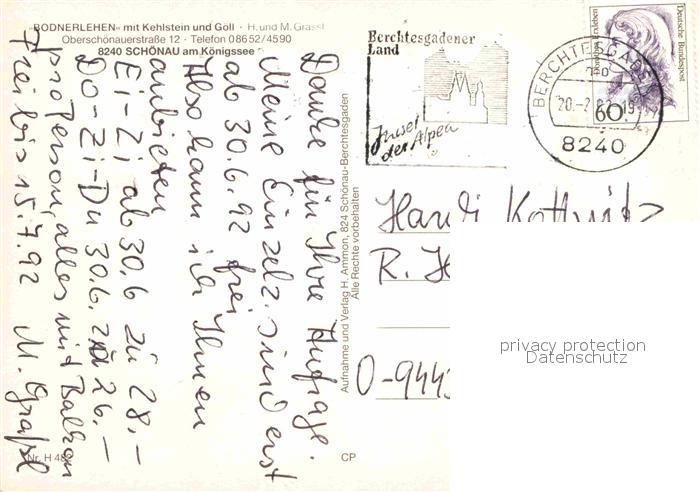 "BODNERLEHEN" mit Kehlstein und Göll · H. und M. Grassl
Oberschönauerstraße 12 · Telefon 08652/4590
8240 SCHÖNAU am Königssee
Danke für Ihre Anfrage.
Meine Einzelz. sind erst
ab 30.6.92 frei
Also kann ich Ihnen
anbieten
Ei-Zi ab 30.6 zu 28.–
Do-Zi-Du 30.6. 26.–
pro Person, alles mit Balkon
Frei bis 15.7.92 M. Graßl
Nr. H 48
CP
Aufnahme und Verlag H. Ammon, 824 Schönau-Berchtesgaden
Alle Rechte vorbehalten
Berchtesgadener
Land
Insel
der Alpen
BERCHTESGAD
20.-2.92.19
8240
Dorothea Erxleben
Deutsche Bundespost
60
Kottwitz
R.
O-944
privacy protection
Datenschutz